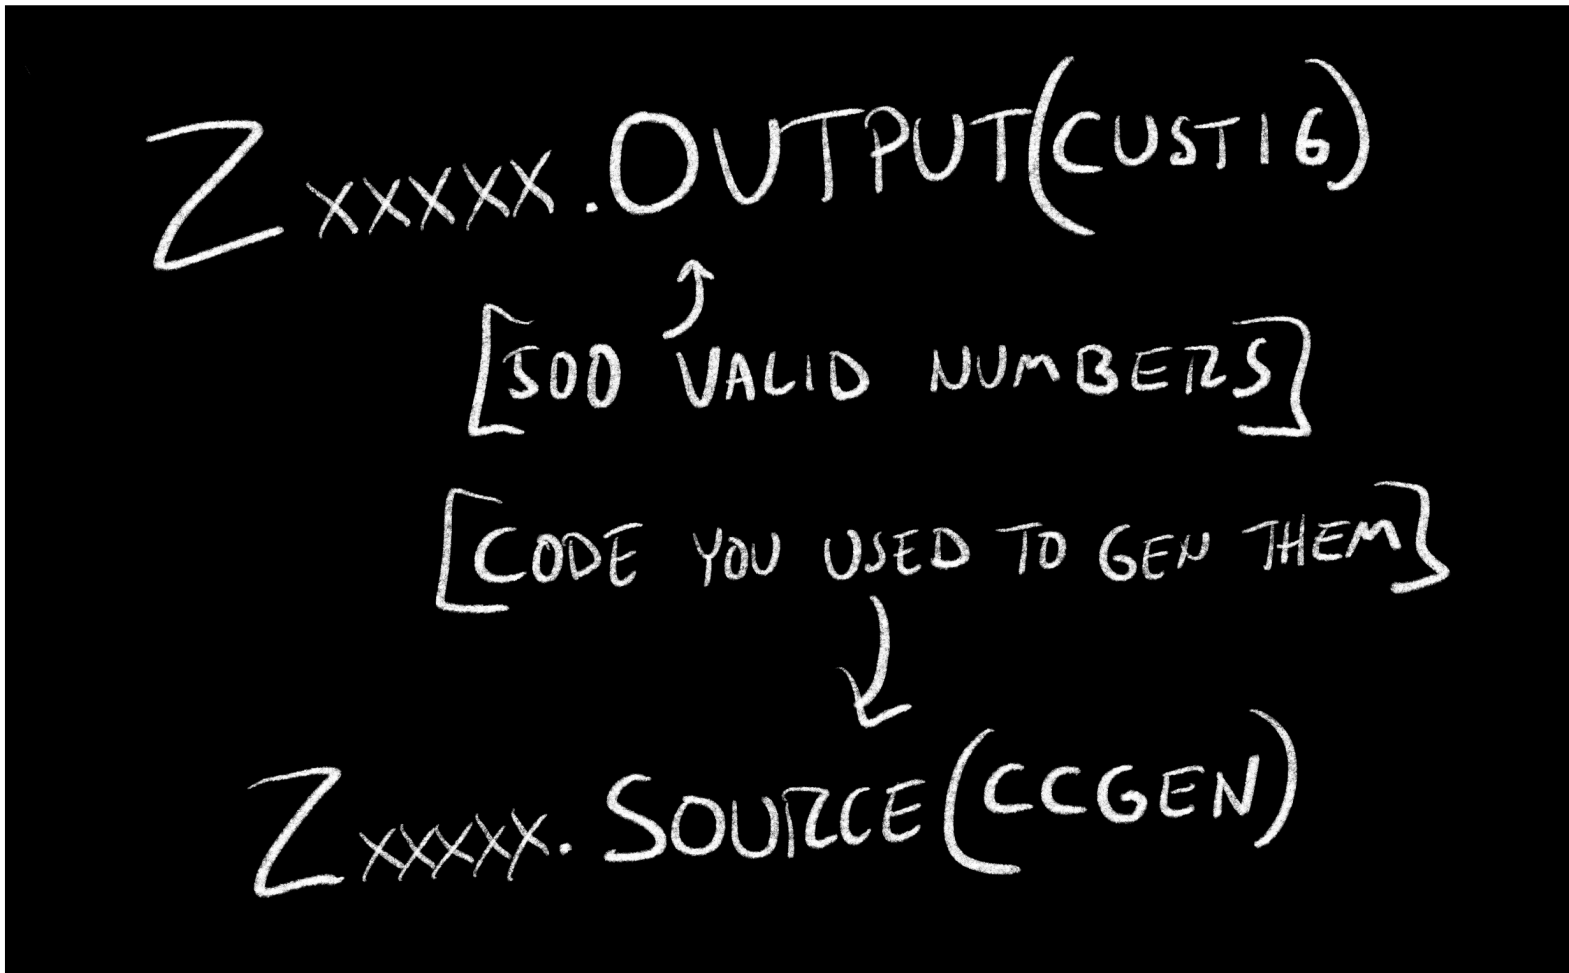 Zxxxxx.OUTPUT(CUST16)
[500 VALID NUMBERS]
[CODE YOU USED TO GEN THEM]
Zxxxxx.SOURCE(CCGEN)